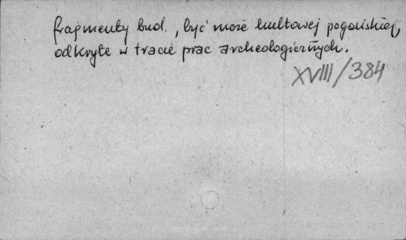 fragmenty bud., być może kultowej pogańskiej,
odkryte w tracie prac archeologicznych.
XVIII/384